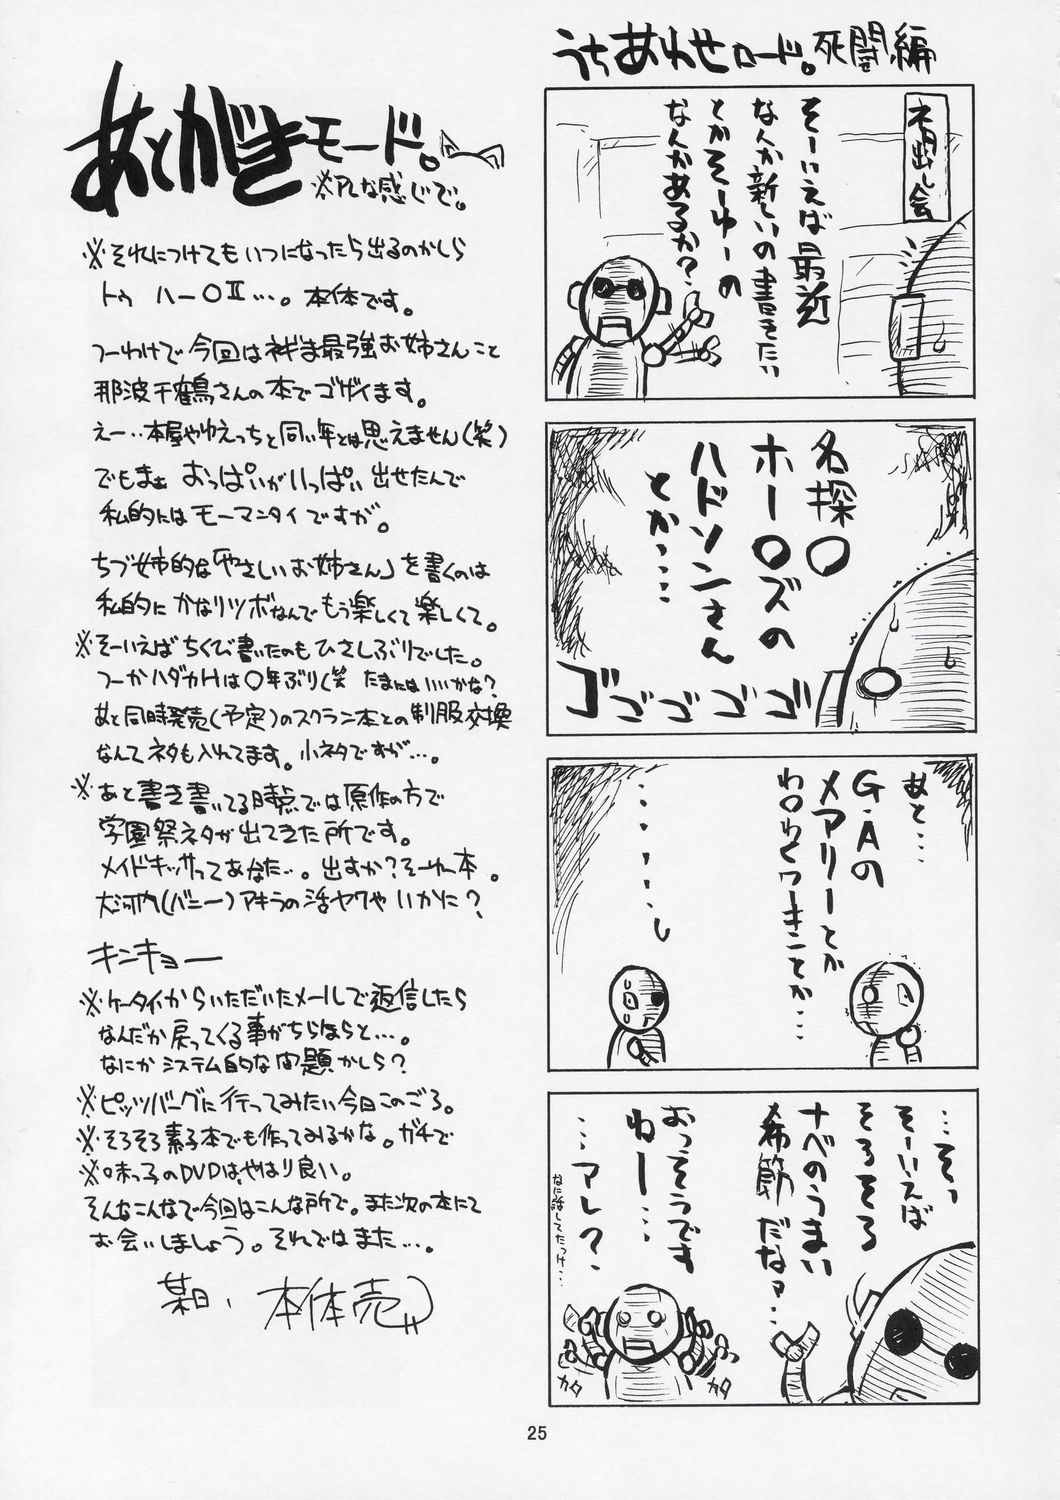 うちあわせロード。死闘編
ネタ出し会
そーいえば最近
なんか新しいの書きたい
とかそーゆーの
なんかあるか?
名探〇
ホー〇ズの
ハドソンさん
とか……
ゴゴゴゴゴ
あと…
G・Aの
メアリーとか
わ〇わくワーキことか…
………
…そっ
そーいえば
そろそろ
ナベのうまい
季節だなァ…
おっそうです
ねー…
…アレ?
なに話してたっけ…
カタ
カタ
あとがきモード。
※アレな感じで。
※それにつけてもいつになったら出るのかしら
トゥ ハー〇Ⅱ…。本体です。
つーわけで今回はネギま最強お姉さんこと
那波千鶴さんの本でゴザイます。
えー‥本屋やゆえっちと同い年とは思えません(笑)
でもまぁ おっぱいがいっぱい出せたんで
私的にはモーマンタイですが。
ちづ姉的な「やさしいお姉さん」を書くのは
私的にかなりツボなんでもう楽しくて楽しくて。
※そーいえばちくび書いたのもひさしぶりでした。
つーかハダカHは〇年ぶり(笑 たまにはいいかな?
あと同時発売(予定)のスクラン本との制服交換
なんてネタも入れてます。小ネタですが…。
※あと書き書いてる時点では原作の方で
学園祭ネタが出てきた所です。
メイドキッサってあなた…。出すか?そーゆー本。
大河内(バニー)アキラの活ヤクやいかに?
キンキョー
※ケータイからいただいたメールで返信したら
なんだか戻ってくる事がちらほらと…。
なにかシステム的な問題かしら?
※ピッツバーグに行ってみたい今日このごろ。
※そろそろ素子本でも作ってみるかな。ガチで
※味っ子のDVDは、やはり良い。
そんなこんなで今回はこんな所で。また次の本にて
お会いしましょう。それではまた…。
某日、本体売
25